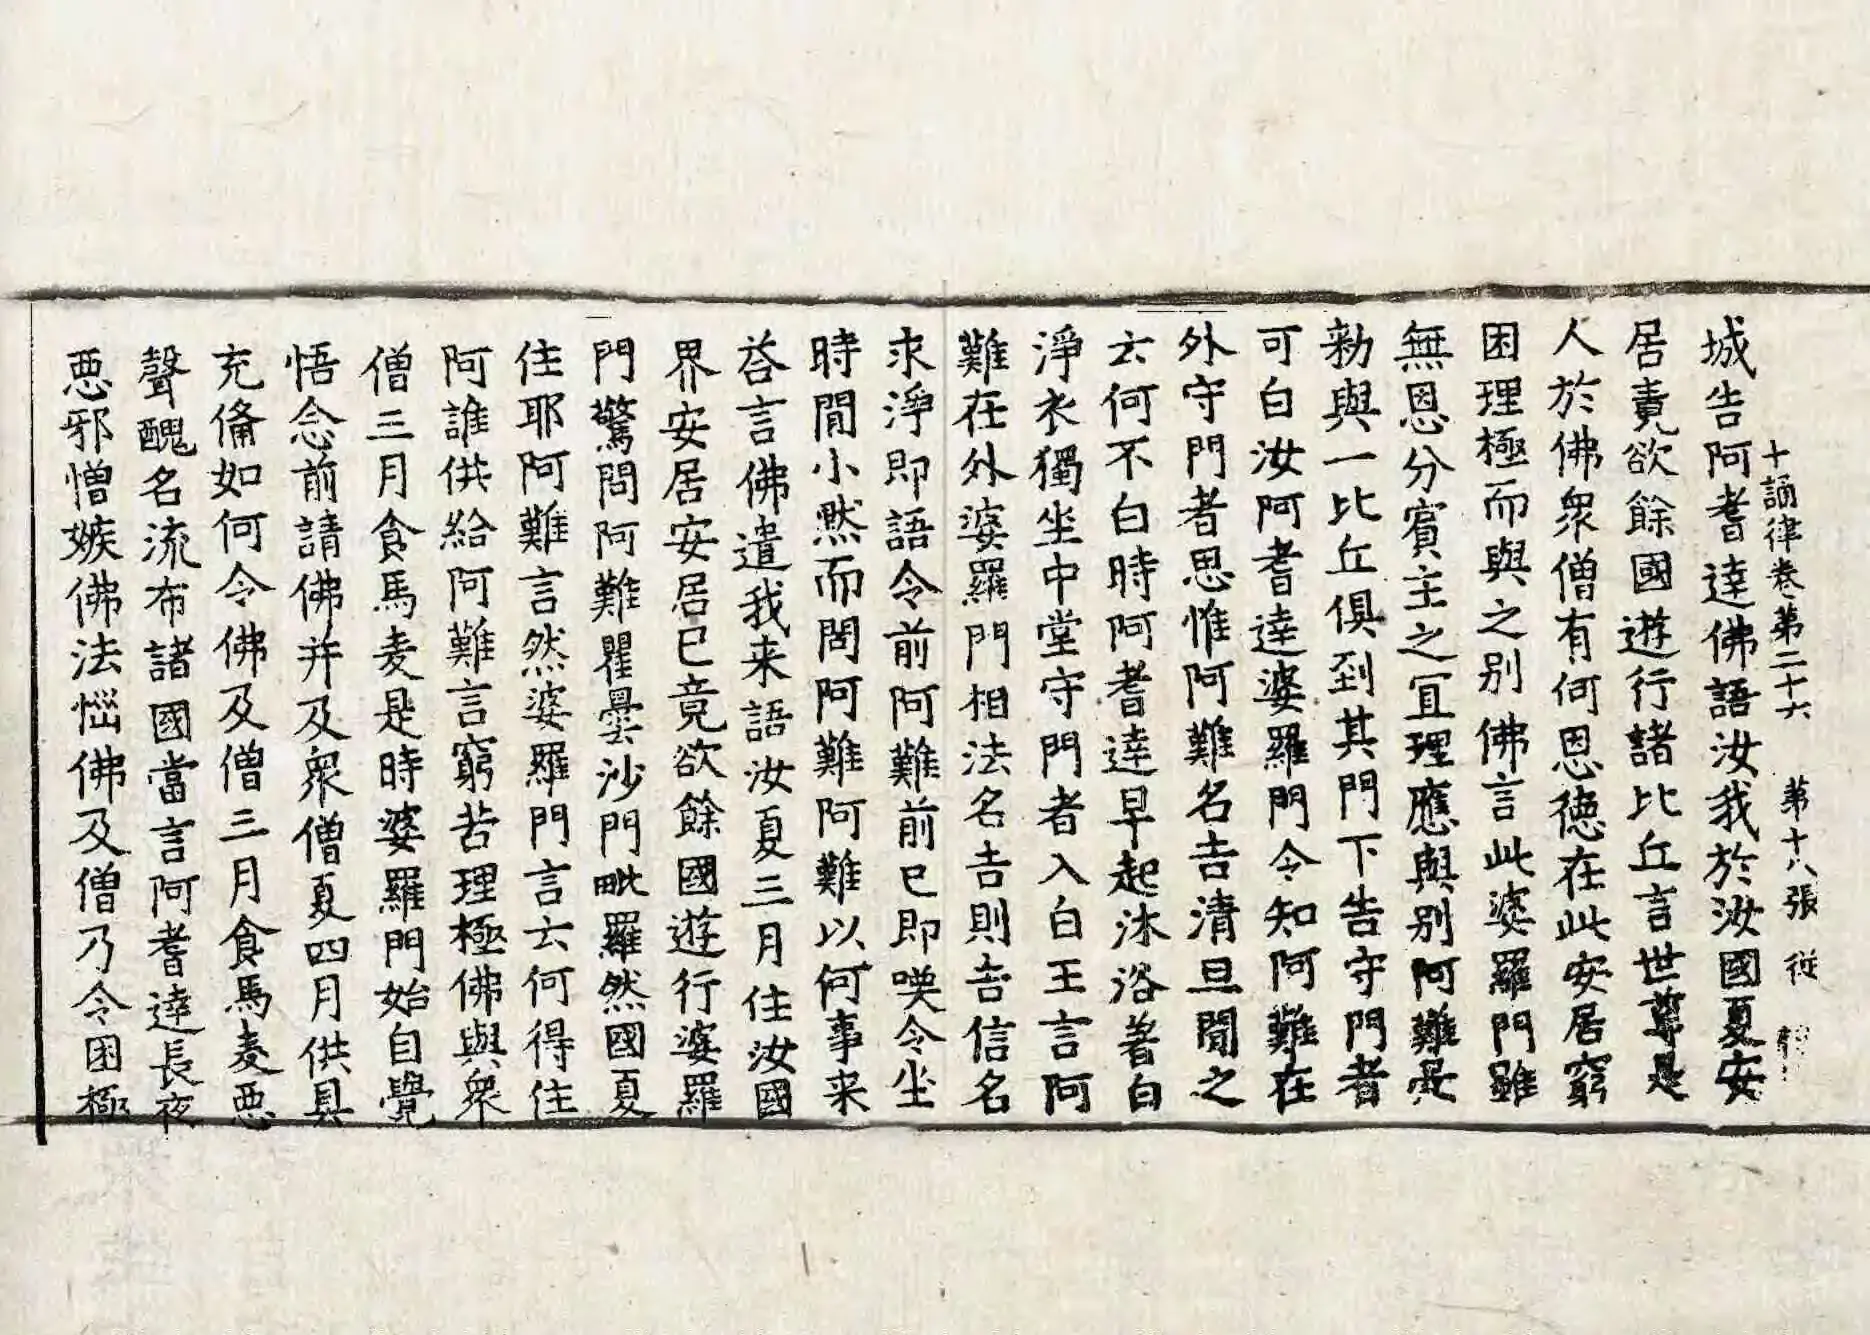 十誦律卷第二十六　第十八張　從
城告阿耆達佛語汝我於汝國夏安
居竟欲餘國遊行諸比丘言世尊是
人於佛眾僧有何恩德在此安居窮
困理極而與之別佛言此婆羅門雖
無恩分賓主之冝理應與別阿難受
勑與一比丘俱到其門下告守門者
可白汝阿耆達婆羅門令知阿難在
外守門者思惟阿難名吉清旦聞之
云何不白時阿耆達早起沐浴著白
淨衣獨坐中堂守門者入白王言阿
難在外婆羅門相法名吉則吉信名
求淨即語令前阿難前已即喚令坐
時閒小默而問阿難阿難以何事来
荅言佛遣我来語汝夏三月住汝國
界安居安居已竟欲餘國遊行婆羅
門驚問阿難瞿曇沙門毗羅然國夏
住耶阿難言然婆羅門言云何得住
阿誰供給阿難言窮苦理極佛與眾
僧三月食馬麦是時婆羅門始自覺
悟念前請佛并及眾僧夏四月供具
充俻如何令佛及僧三月食馬麦惡
聲醜名流布諸國當言阿耆達長夜
惡邪憎嫉佛法惱佛及僧乃令困極